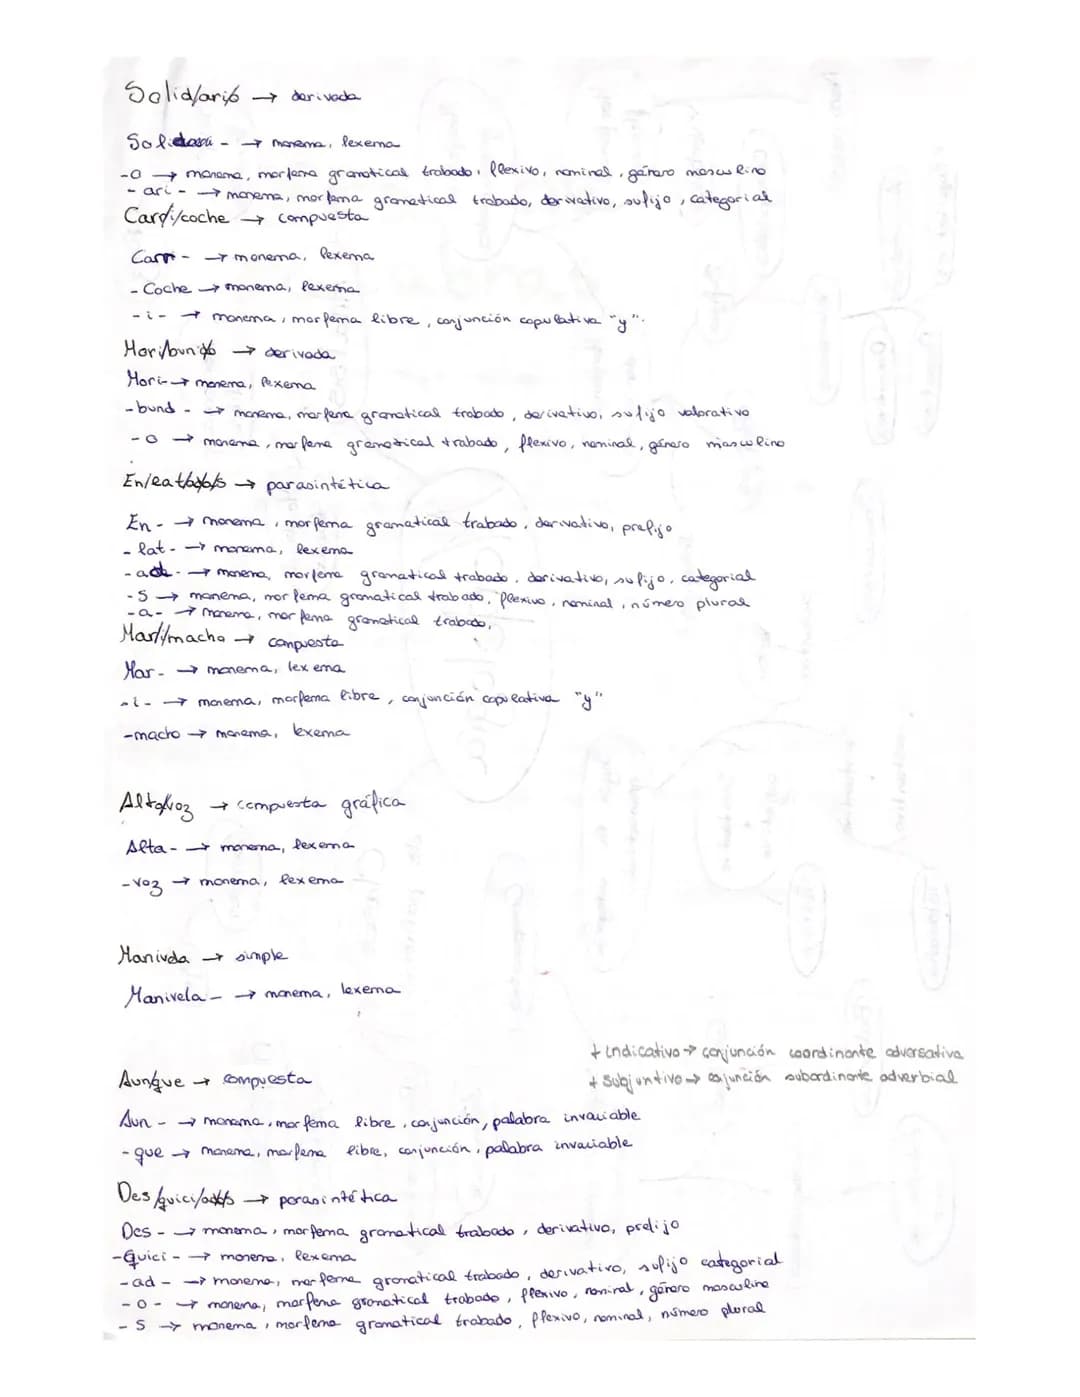 Solid/ari/o → derivada
Solidari - → monema, lexema
-o → monema, morfema gramatical trabado, flexivo, nominal, género masculino
- ari - → monema, morfema gramatical trabado, derivativo, sufijo, categorial
Carr/i/coche → compuesta
Carr - → monema, lexema
- Coche → monema, lexema
- i - → monema, morfema libre, conjunción copulativa "y".
Mori/bund/o → derivada
Mori- → monema, lexema
- bund - → monema, morfema gramatical trabado, derivativo, sufijo valorativo
- o → monema, morfema gramatical trabado, flexivo, nominal, género masculino
En/lat/ad/o/s → parasintética
En - → monema, morfema gramatical trabado, derivativo, prefijo
- lat - → monema, lexema
- ad - → monema, morfema gramatical trabado, derivativo, sufijo, categorial
- S → monema, morfema gramatical trabado, flexivo, nominal, número plural
-a- → monema, morfema gramatical trabado,
Mar/i/macho → compuesta
Mar - → monema, lexema
- i - → monema, morfema libre, conjunción copulativa "y"
-macho → monema, lexema
Alta/voz → compuesta gráfica
Alta - → monema, lexema
- voz → monema, lexema
Manivela → simple
Manivela - → monema, lexema
+ indicativo → conjunción coordinante adversativa
Aun/que → compuesta
+ subjuntivo → conjunción subordinante adverbial
Aun - → monema, morfema libre, conjunción, palabra invariable
- que → monema, morfema libre, conjunción, palabra invariable
Des/quici/ad/o/s → parasintética
Des - → monema, morfema gramatical trabado, derivativo, prefijo
-Quici - → monema, lexema
- ad - → monema, morfema gramatical trabado, derivativo, sufijo categorial
- o - → monema, morfema gramatical trabado, flexivo, nominal, género masculino
- S → monema, morfema gramatical trabado, flexivo, nominal, número plural